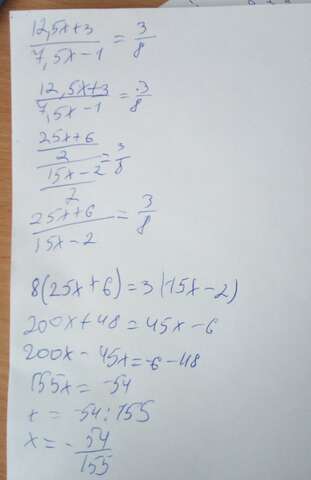 (12,5x+3)/(7,5x-1) = 3/8
(12,5x+3)/(7,5x-1) = 3/8
((25x+6)/2)/((15x-2)/2) = 3/8
(25x+6)/(15x-2) = 3/8
8(25x+6)=3(15x-2)
200x+48=45x-6
200x-45x=-6-48
155x=-54
x=-54:155
x=-54/155